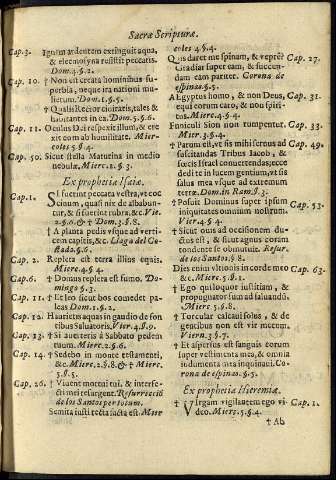 Sacræ Scripturæ.
Cap. 3. Ignem ardentem extinguit aqua,
& eleemosyna resistit peccatis.
Dom. 4. §. 2.
Cap. 10. † Non est creata hominibus su-
perbia, neque ira nationi mu-
lierum. Dom. 1. §. 5.
† Qualis Rector ciuitatis, tales &
habitantes in ea. Dom. 5. §. 6.
Cap. 11. Oculus Dei respexit illum, & ere
xit eom ab humilitate. Mier-
coles 5. §. 4.
Cap. 50. Sicut stella Matutina in medio
nebulæ. Mier. 1. §. 3.
Ex prophetia Isaiæ.
Cap. 1. Si fuerint peccata vestra, vt coc
cinum, quasi nix de albabun-
tur, & si fuerint rubra, &c. Vie.
2. §. 6. & † Dom. 3. §. 8.
† A planta pedis vsque ad verti-
cem capitis, &c. Llaga del Co-
stado. §. 6.
Cap. 2. Repleta est terra illius equis.
Mier. 4. §. 4.
Cap. 6. † Domus repleta est fumo. Do-
mingo 5. §. 3.
Cap. 11. † Et leo sicut bos comedet pa-
leas Dom. 1. §. 2.
Cap. 12. Haurietis aquas in gaudio de fon
tibus Saluatoris. Vier. 4. §. 9.
Cap. 13. † Si auerteris à Sabbato pedem
tuum. Mier. 2. §. 6.
Cap. 14. † Sedebo in monte testamenti,
&c. Mier. 2. §. 8. & † Mier.
5. §. 5.
Cap. 26. † Viuent mortui tui, & interfe-
cti mei resurgent. Resurreciō
de los Santos per totum.
Semita iusti recta facta est. Mier
coles 4. §. 4.
Quis daret me spinam, & veprē? Cap. 27.
Gradiar super eam, & succen-
dam eam pariter. Corona de
espinas. §. 5.
Aegyptus homo, & non Deus, Cap. 31.
equi eorum caro, & non spiri-
tus. Mierc. 4. §. 4.
Funiculi Sion non rumpentur. Cap. 33.
Mier. 3. §. 4.
† Parum est, vt sis mihi seruus ad Cap. 49.
suscitandas Tribus Iacob, &
fœces Israel conuertendas; ecce
dedi te in lucem gentium, vt sis
salus mea vsque ad extremum
terræ. Dom. in Ram. §. 3.
† Posuit Dominus super ipsum Cap. 53.
iniquitates omnium nostrum.
Vier. 4. §. 4.
† Sicut ouis ad occisionem du-
ctus est, & sicut agnus coram
tondente se obmutuit. Resur.
de los Santos. §. 8.
Dies enim vltionis in corde meo Cap. 63.
&c. Mier. 5. §. 1.
† Ego quiloquor iustitiam, &
propugnator sum ad saluandū.
Mierc. 5. §. 8.
† Torcular calcaui solus, & de
gentibus non est vir mecum.
Viern. 3. §. 7.
† Et aspersus est sanguis eorum
super vestimenta mea, & omnia
indumenta mea inquinaui. Co-
rona de espinas. §. 5.
Ex prophetia Hieremiæ.
† Virgam vigilantem ego vi- Cap. 1.
deo. Mierc. 5. §. 4.
† Ab